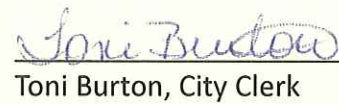 Toni Burton
Toni Burton, City Clerk